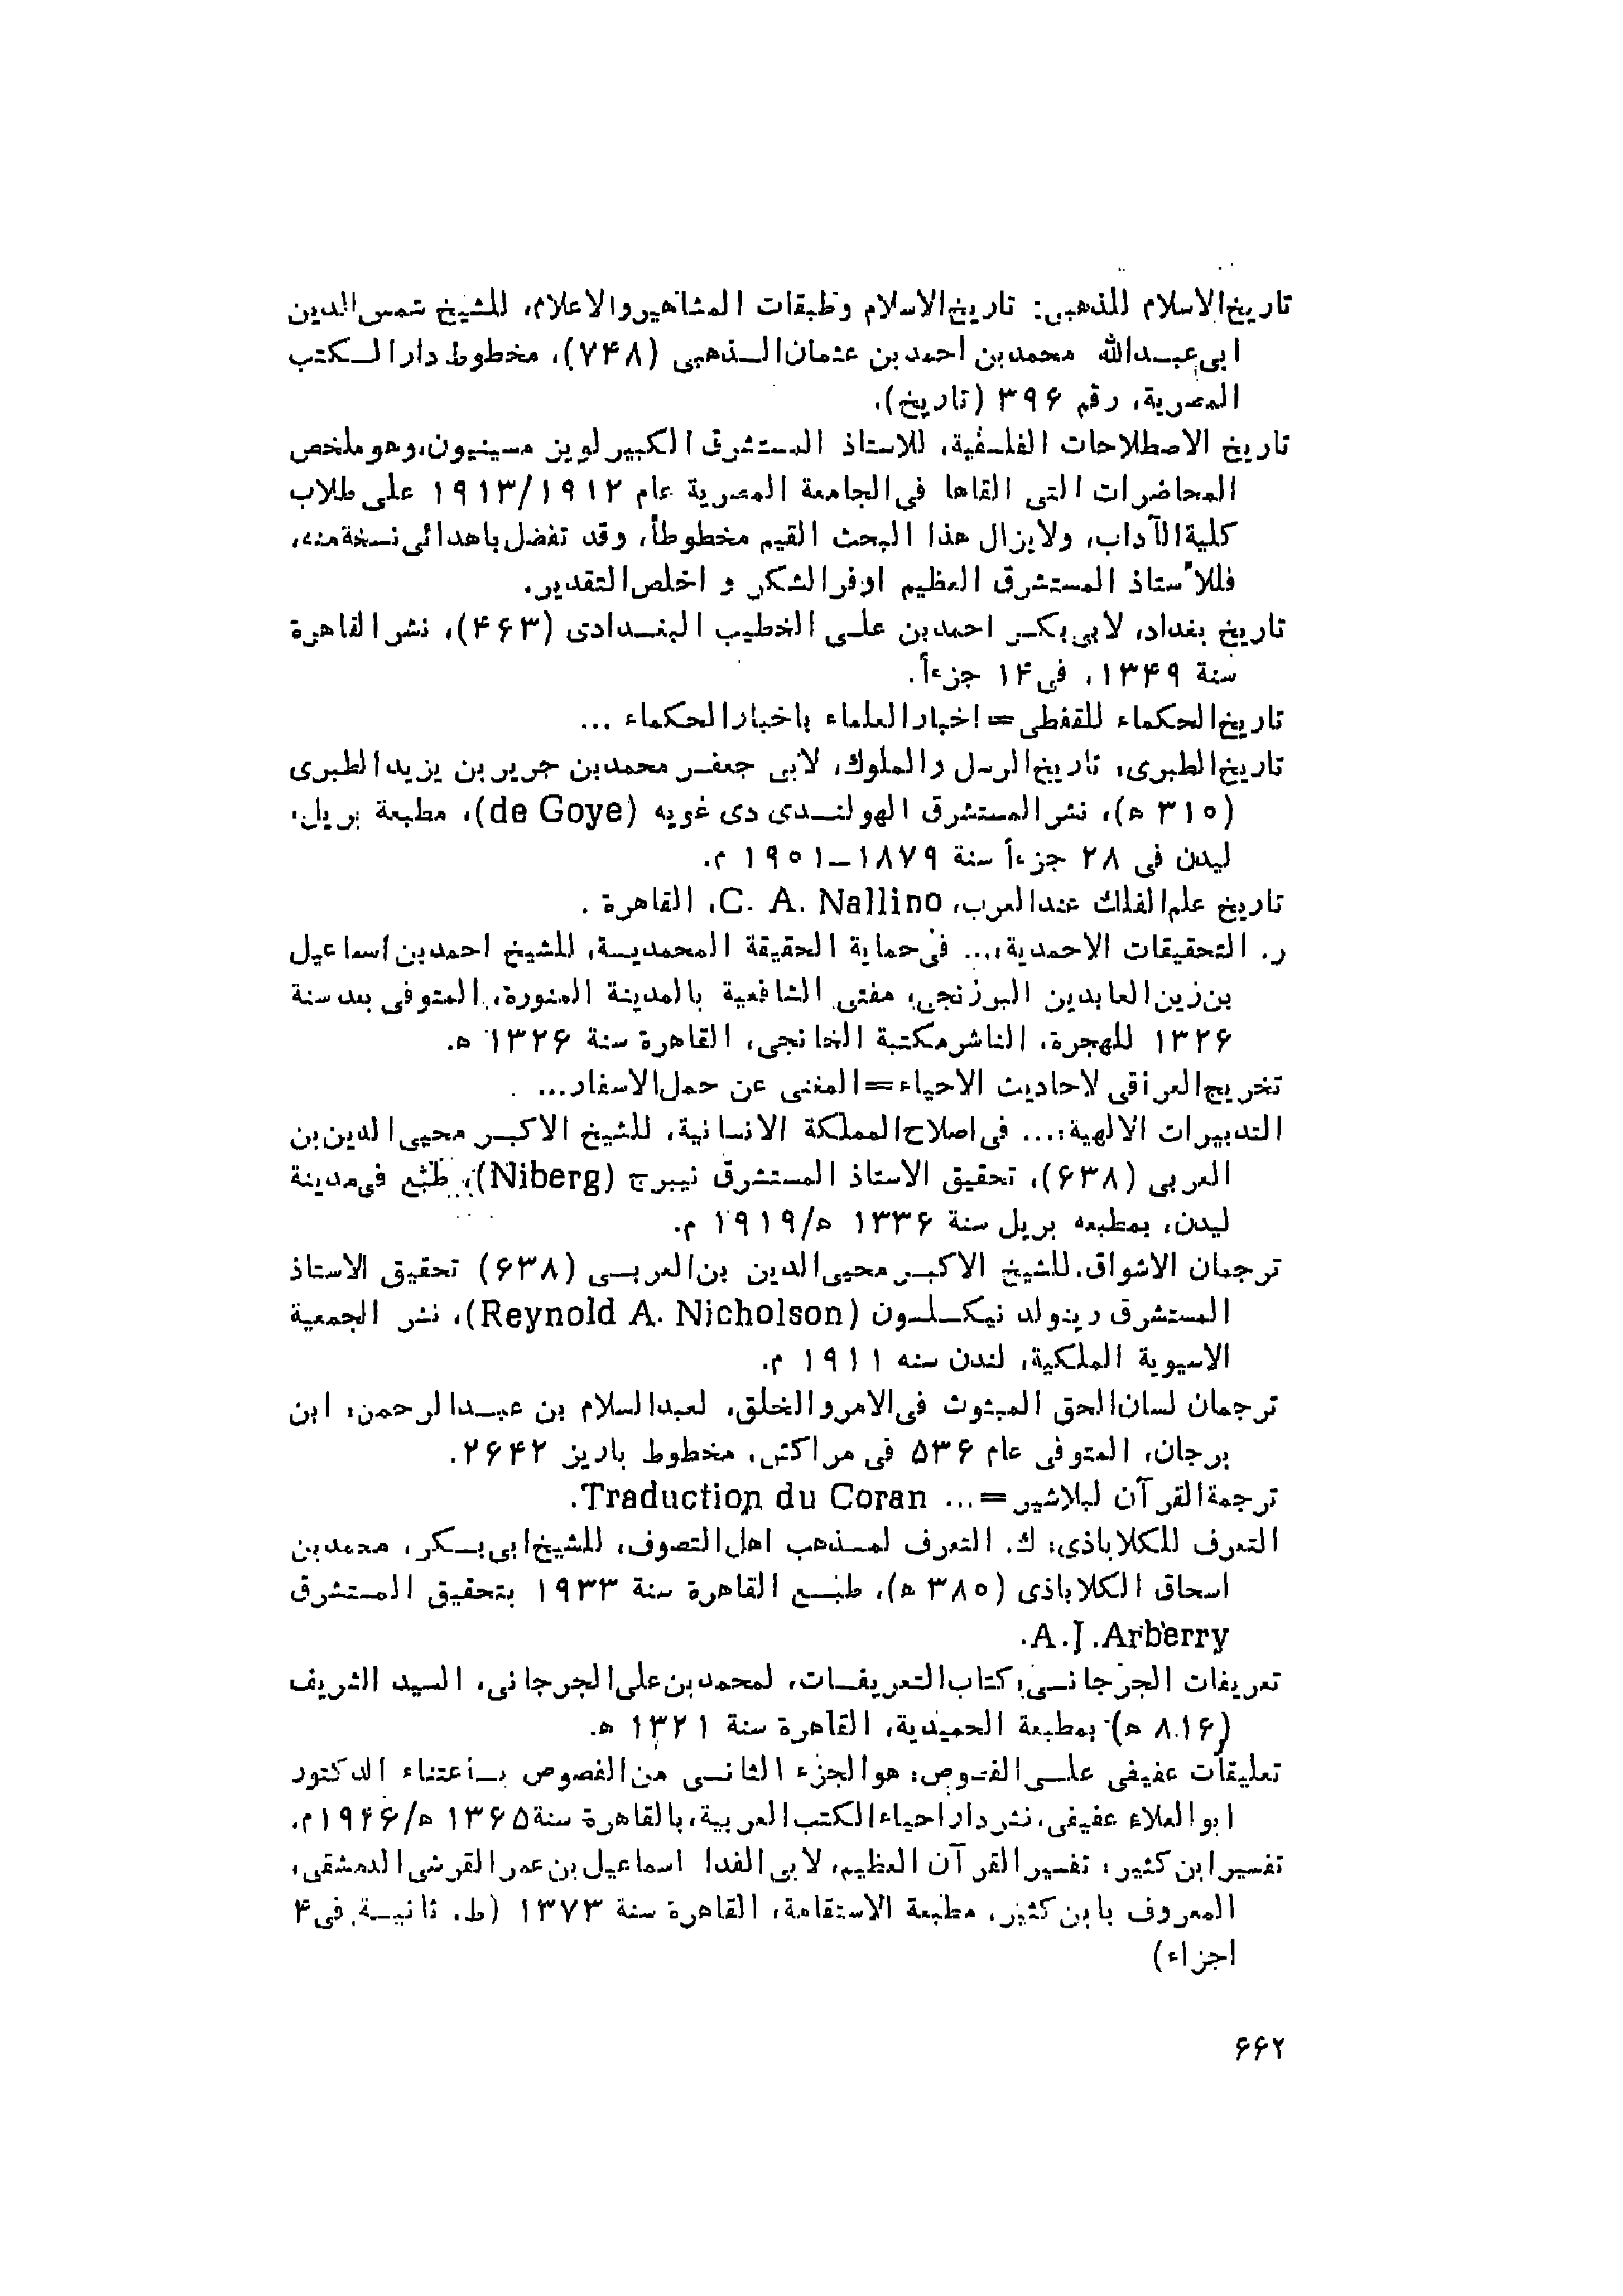 تاریخ‌الاسلام للذهبی: تاریخ‌الاسلام وطبقات المشاهیروالاعلام، للشیخ شمس‌الدین
ابی‌عبدالله محمدبن احمدبن عثمان‌الذهبی (۷۴۸)، مخطوط دارالکتب
المصریة، رقم ۳۹۶ (تاریخ).
تاریخ الاصطلاحات الفلسفیة، للاستاذ المستشرق الکبیرلویز مسینیون،وهوملخص
المحاضرات التی القاها فی‌الجامعة المصریة عام ۱۹۱۳/۱۹۱۲ علی طلاب
کلیةالآداب، ولایزال هذا البحث القیم مخطوطاً، وقد تفضل‌باهدائی‌نسخةمنه،
فللأستاذ المستشرق العظیم اوفرالشکر و اخلص‌التقدیر.
تاریخ بغداد، لابی‌بکر احمدبن علی الخطیب البغدادی (۴۶۳)، نشرالقاهرة
سنة ۱۳۴۹، فی۱۴ جزءاً.
تاریخ‌الحکماء للقفطی=اخبارالعلماء باخبارالحکماء ...
تاریخ‌الطبری، تاریخ‌الرسل والملوك، لابی جعفر محمدبن جریربن یزیدالطبری
(۳۱۰ ه)، نشرالمستشرق الهولندی دی غویه (de Goye)، مطبعة بریل،
لیدن فی ۲۸ جزءاً سنة ۱۸۷۹–۱۹۰۱ م.
تاریخ علم‌الفلك عندالعرب، C. A. Nallino، القاهرة .
ر. التحقیقات الاحمدیة،... فی‌حمایة الحقیقة المحمدیة، للشیخ احمدبن‌اسماعیل
بن‌زین‌العابدین البرزنجی، مفتی الشافعیة بالمدینة المنورة، المتوفی بعدسنة
۱۳۲۶ للهجرة، الناشرمکتبة الخانجی، القاهرة سنة ۱۳۲۶ ه.
تخریج‌العراقی لاحادیث الاحیاء=المغنی عن حمل‌الاسفار...
التدبیرات الالهیة:... فی‌اصلاح‌المملکة الانسانیة، للشیخ الاکبر محیی‌الدین‌بن
العربی (۶۳۸)، تحقیق الاستاذ المستشرق نیبرج (Niberg)، طبع فی‌مدینة
لیدن، بمطبعه بریل سنة ۱۳۳۶ ه/۱۹۱۹ م.
ترجمان الاشواق،للشیخ الاکبر محیی‌الدین بن‌العربی (۶۳۸) تحقیق الاستاذ
المستشرق رینولد نیکلسون (Reynold A. Nicholson)، نشر الجمعیة
الاسیویة الملکیة، لندن سنه ۱۹۱۱ م.
ترجمان لسان‌الحق المبثوث فی‌الامروالخلق، لعبدالسلام بن عبدالرحمن، ابن
برجان، المتوفی عام ۵۳۶ فی مراکش، مخطوط باریز ۲۶۴۲.
ترجمةالقرآن لبلاشیر=... Traduction du Coran.
التعرف للکلاباذی: ك. التعرف لمذهب اهل‌التصوف، للشیخ‌ابی‌بکر، محمدبن
اسحاق الکلاباذی (۳۸۰ ه)، طبع القاهرة سنة ۱۹۳۳ بتحقیق المستشرق
A.J.Arberry.
تعریفات الجرجانی: کتاب‌التعریفات، لمحمدبن‌علی‌الجرجانی، السید الشریف
(۸۱۶ ه) بمطبعة الحمیدیة، القاهرة سنة ۱۳۲۱ ه.
تعلیقات عفیفی علی‌الفصوص: هوالجزء الثانی من‌الفصوص باعتناء الدکتور
ابوالعلاء عفیفی،نشرداراحیاءالکتب‌العربیة،بالقاهرة سنة۱۳۶۵ ه/۱۹۴۶م.
تفسیرابن‌کثیر: تفسیرالقرآن العظیم، لابی‌الفدا اسماعیل‌بن‌عمرالقرشی‌الدمشقی،
المعروف بابن‌کثیر، مطبعة الاستقامة، القاهرة سنة ۱۳۷۳ (ط. ثانیة، فی۴
اجزاء)
۶۶۲